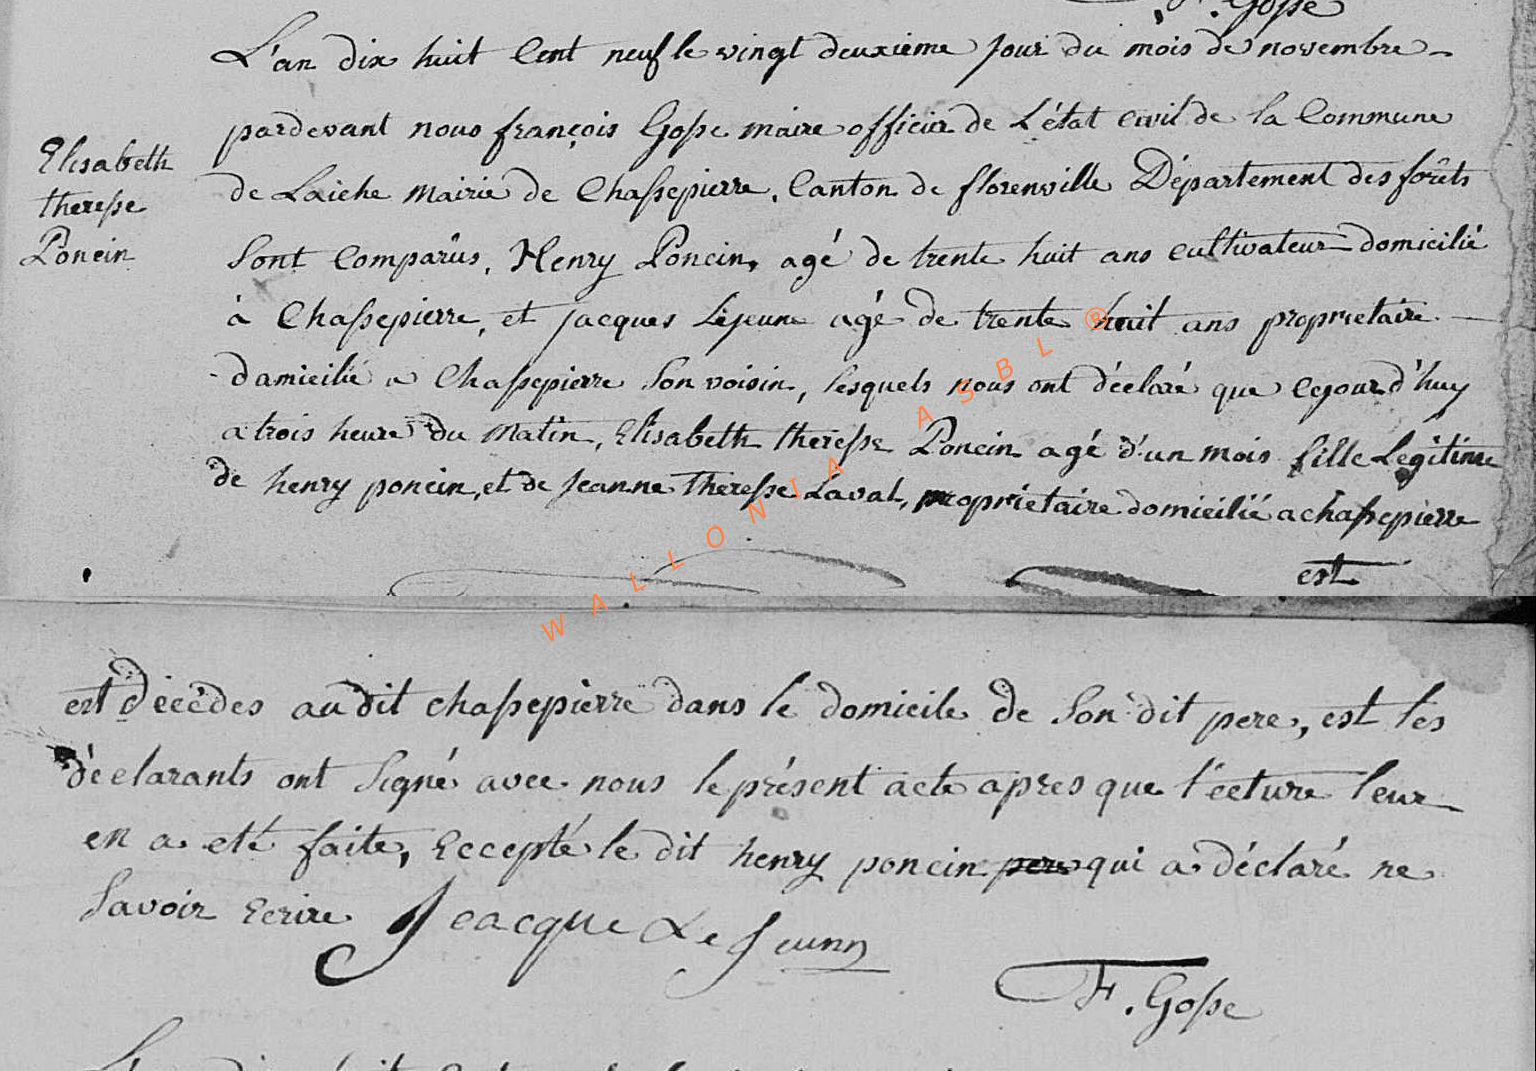 F. Gosse
L'an dix huit Cent neuf le vingt deuxieme jour du mois de novembre
Elisabeth
theresse
Poncin
pardevant nous françois Gosse maire officier de L'état civil de la Commune
de Laiche Mairie de Chassepierre, Canton de florenville Département des forêts
Sont Comparûs, Henry Poncin, agé de trente huit ans cultivateur domicilié
à Chassepierre, et jacques Lejeune agé de trente huit ans proprietaire
damicilié a Chassepierre Son voisin, lesquels nous ont déclaré que cejourd'huy
a trois heure du Matin, Elisabeth theresse Poncin agé d'un mois fille Legitime
de henry poncin, et de jeanne Theresse Laval, proprietaire domicilié a chassepierre
est
est décèdes au dit chassepierre dans le domicile de Son dit pere, est les
déclarants ont Signé avec nous le présent acte apres que lécture leur
en a eté faite, Eccepté le dit henry poncin pere qui a déclaré ne
Savoir Ecrire Jeacque Le Jeunn
F. Gosse
WALLONIA ASBL ®